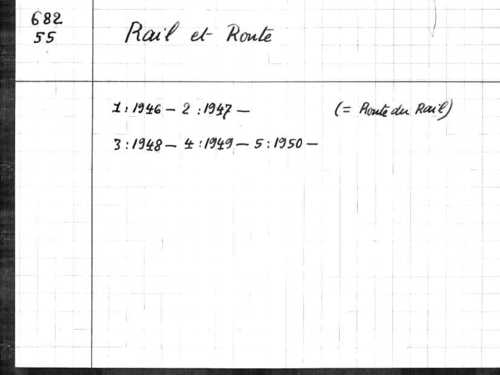 682
55
Rail et Route
1:1946 – 2:1947 – (= Route du Rail)
3:1948 – 4:1949 – 5:1950 –